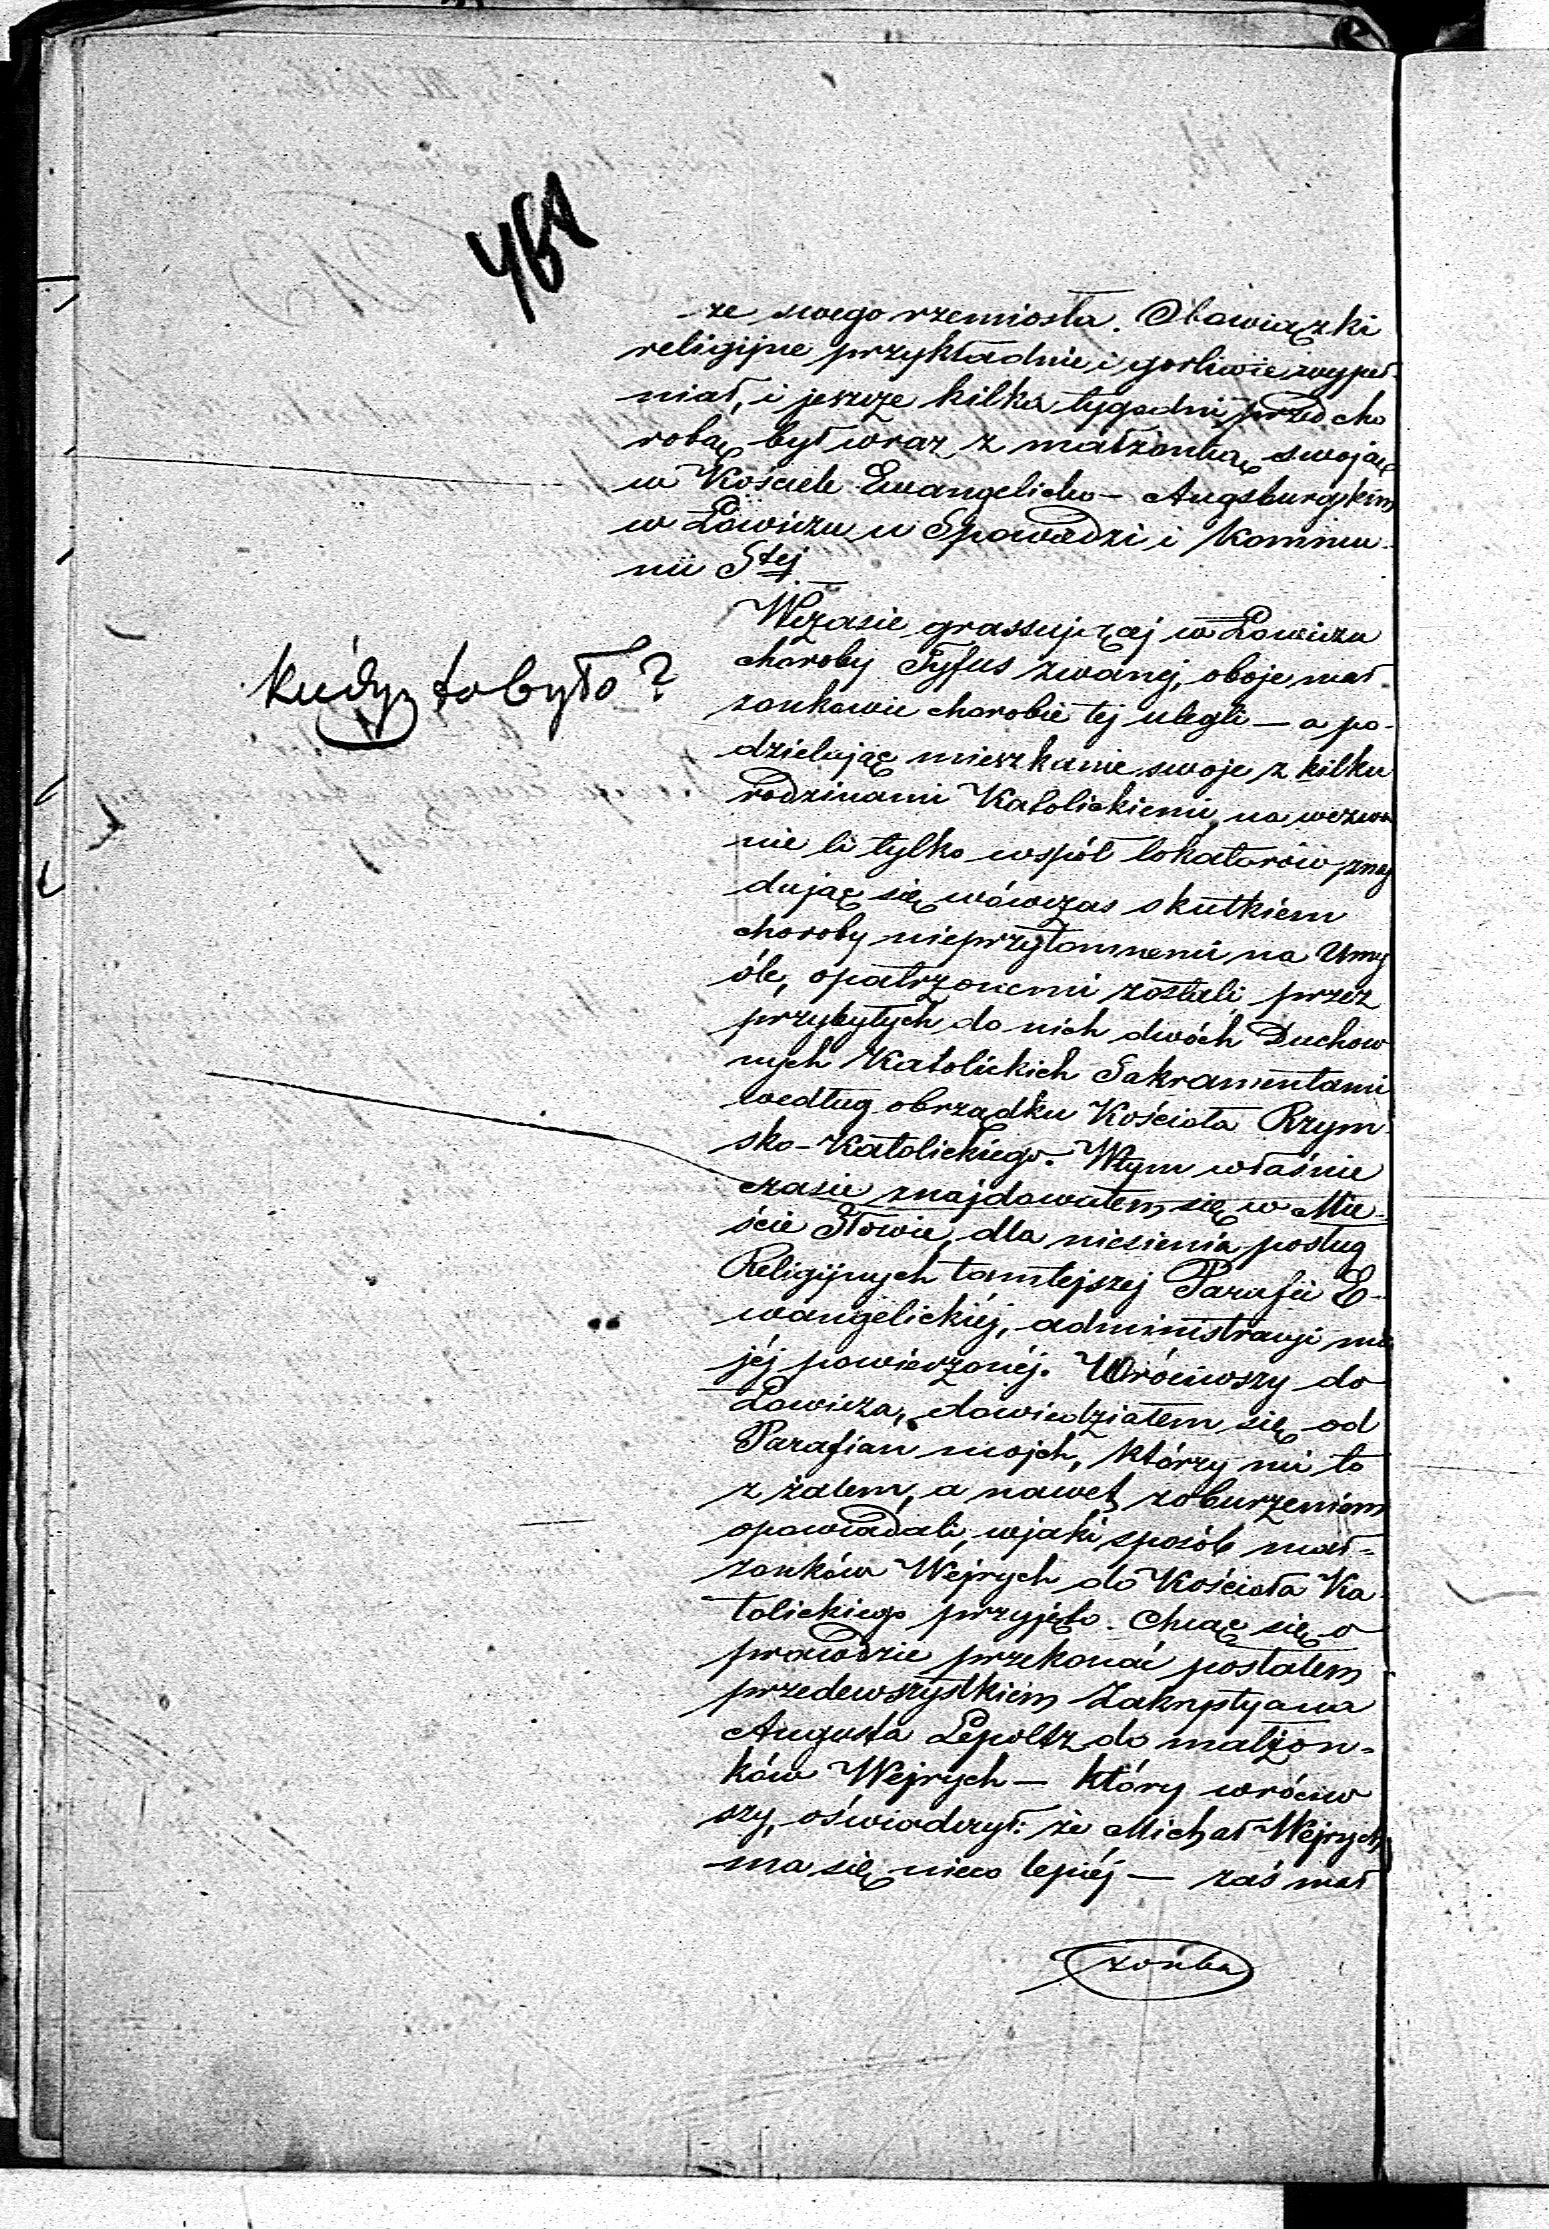 461
ze swego rzemiosła. Obowiązki
religijne przykładnie i gorliwie wypeł-
niał, i jeszcze kilka tygodni przed cho
robą był wraz z małżonką swoją
w Kościele Ewangelicko-Augsburgskim
w Łowiczu u Spowiedzi i Kommu-
nii Stej
Wczasie grassującej w Łowiczu
choroby Tyfus zwanej, oboje mał
żonkowie chorobie tej ulegli — a po-
dzielając mieszkanie swoje z kilku
rodzinami Katolickiemi, na wezwa
nie li tylko współ lokatorów znaj
dując się wówczas skutkiem
choroby nieprzytomnemi na Umy
śle, opatrzonemi zostali przez
przybyłych do nich dwóch Duchow
nych Katolickich Sakramentami
według obrządku Kościoła Rzym-
sko-Katolickiego. Wtym właśnie
czasie znajdowałem się w Mie-
ście Iłowie, dla niesienia posług
Religijnych tamtejszej Parafii E-
wangelickiéj, administracji mo
jéj powierzonéj. Wróciwszy do
Łowicza, dowiedziałem się od
Parafian moich, którzy mi to
z żalem, a nawet zoburzeniem
opowiadali, wjaki sposób mał-
żonków Wejrych do Kościoła Ka-
tolickiego przyjęto. Chcąc się o
prawdzie przekonać posłałem
przedewszystkiem Zakrystyana
Augusta Lepoltz do małżon-
ków Wejrych — który wróciw
szy, oświadczył: że Michał Wejrych
ma się nieco lepiéj — zaś mał
żonka
kiedyż to było?